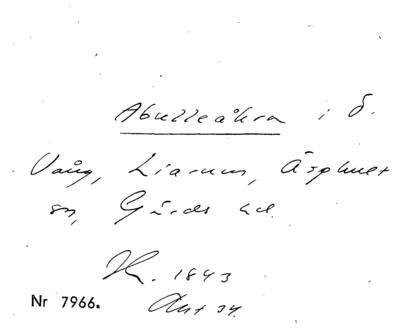 Abulleåkra i Ö.
Vång, Liarum, Äsphult
sn, Gärds hd.
1843
Nr 7966. Akt 34.